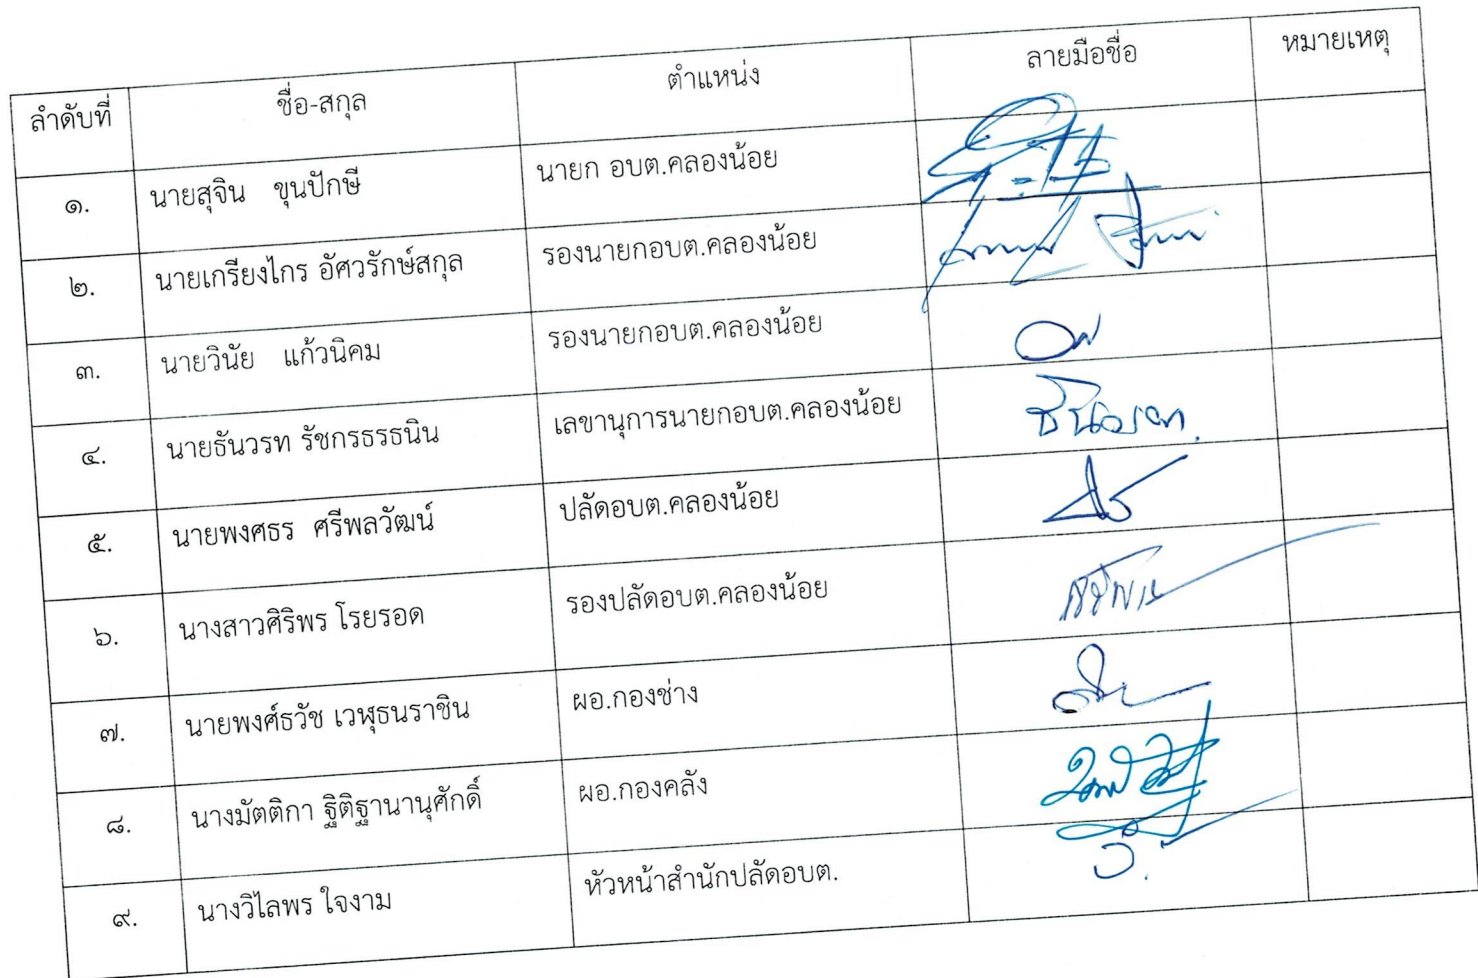 ลำดับที่ ชื่อ-สกุล ตำแหน่ง ลายมือชื่อ หมายเหตุ
๑. นายสุจิน ขุนปักษี นายก อบต.คลองน้อย
๒. นายเกรียงไกร อัศวรักษ์สกุล รองนายกอบต.คลองน้อย
๓. นายวินัย แก้วนิคม รองนายกอบต.คลองน้อย
๔. นายธันวรท รัชกรธรธนิน เลขานุการนายกอบต.คลองน้อย
๕. นายพงศธร ศรีพลวัฒน์ ปลัดอบต.คลองน้อย
๖. นางสาวศิริพร โรยรอด รองปลัดอบต.คลองน้อย
๗. นายพงศ์ธวัช เวฬุธนราชิน ผอ.กองช่าง
๘. นางมัตติกา ฐิติฐานานุศักดิ์ ผอ.กองคลัง
๙. นางวิไลพร ใจงาม หัวหน้าสำนักปลัดอบต.